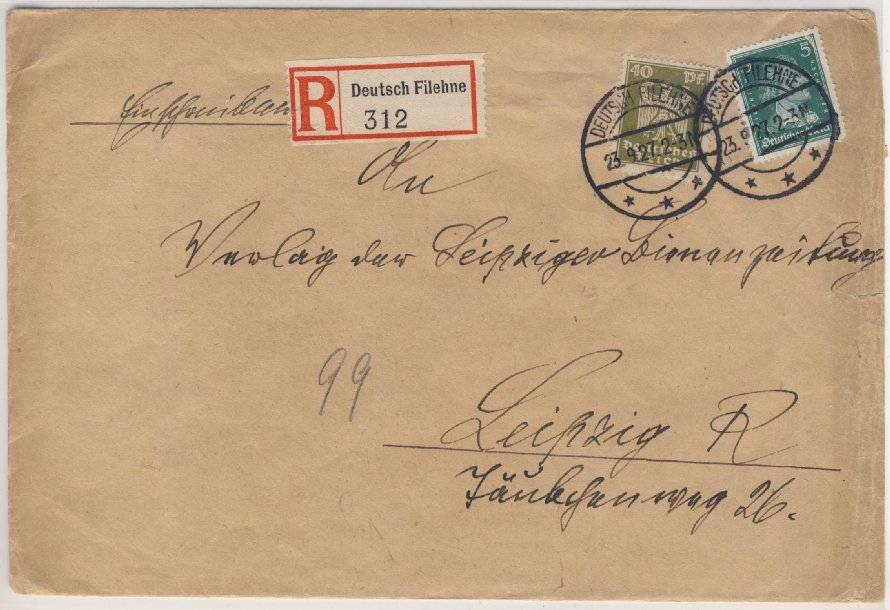 Einschreiben
R Deutsch Filehne
312
40 Pf
Deutsches Reich
5
Deutsches Reich
DEUTSCH FILEHNE
23.9.27.2-3N
DEUTSCH FILEHNE
23.9.27.2-3N
An
Verlag der Leipziger Bienenzeitung
99
Leipzig R
Täubchenweg 26.